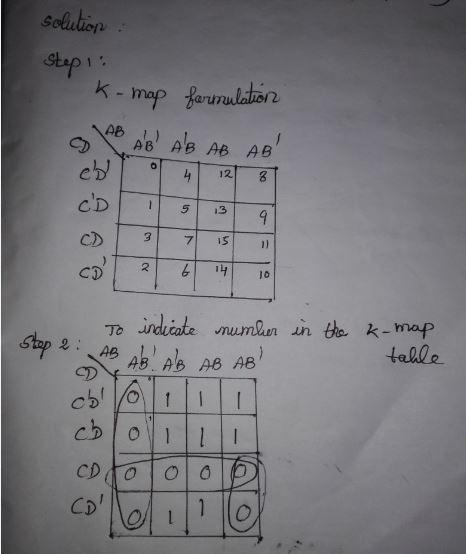 Solution :
Step 1 :
K - map farmulation
CD AB A'B' A'B AB AB'
C'D' 0 4 12 8
C'D 1 5 13 9
CD 3 7 15 11
CD' 2 6 14 10
Step 2 : To indicate number in the K-map
table
CD AB A'B' A'B AB AB'
C'D' 0 1 1 1
C'D 0 1 1 1
CD 0 0 0 0
CD' 0 1 1 0